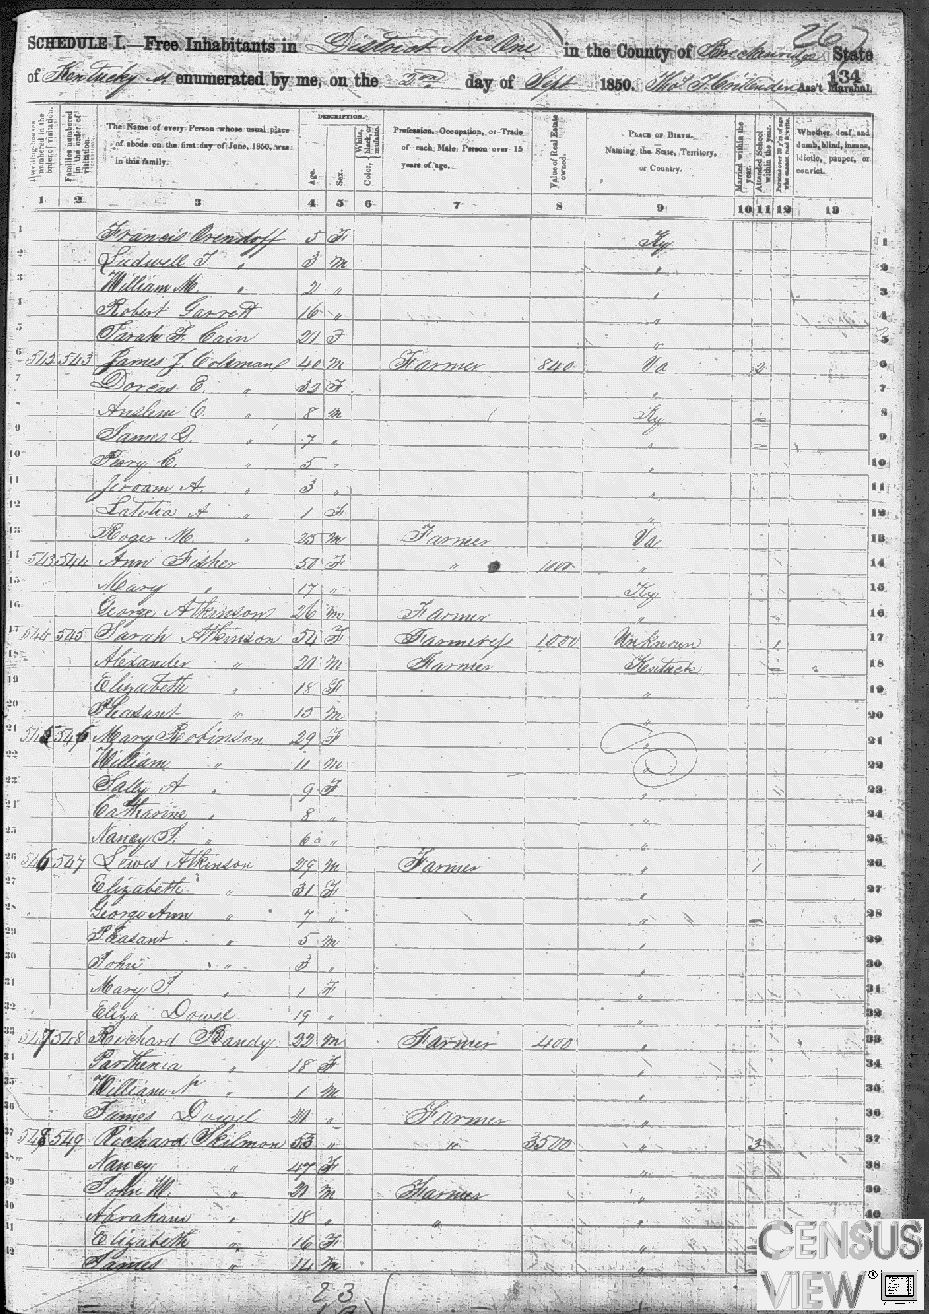 26
SCHEDULE I.—Free Inhabitants in District No One in the County of Breckenridge State
of Kentucky enumerated by me, on the 3rd day of Sept 1850. Thos. J. Crittenden Ass't Marshal.
134
Dwelling-houses numbered in the order of visitation.
Families numbered in the order of visitation.
The Name of every Person whose usual place of abode on the first day of June, 1850, was in this family.
DESCRIPTION.
Age.
Sex.
Color, White, black, or mulatto.
Profession, Occupation, or Trade of each Male Person over 15 years of age.
Value of Real Estate owned.
PLACE OF BIRTH. Naming the State, Territory, or Country.
Married within the year.
Attended School within the year.
Persons over 20 y'rs of age who cannot read & write.
Whether deaf and dumb, blind, insane, idiotic, pauper, or convict.
1 2 3 4 5 6 7 8 9 10 11 12 13
1 Francis Orendoff 5 F Ky 1
2 Lidwell T " 3 M " 2
3 William M. " 2 " " 3
4 Robert Garrett 16 " " 4
5 Sarah F. Cain 21 F " 5
6 542 543 James J Coleman 40 M Farmer 840 Va 2 6
7 Dorcas E. " 32 F " 7
8 Anslem C. " 8 M Ky 8
9 James D. " 7 " " 9
10 " 5 " " 10
11 A. " 3 " " 11
12 Latitia A " 1 F " 12
13 Roger M. " 25 M Farmer Va 13
14 543 544 Ann Fisher 50 F " 100 " 14
15 Mary " 17 " Ky 15
16 George Atkinson 26 M Farmer " 16
17 544 545 Sarah Atkinson 54 F Farmeress 1000 Unknown 1 17
18 Alexander " 21 M Farmer 18
19 Elizabeth " 18 F " 19
20 Pleasant " 13 M " 20
21 545 546 Mary Robinson 29 F " 21
22 William " 11 M " 22
23 Sally A " 9 F " 23
24 Catharine " 8 " " 24
25 Nancy J. " 6 " " 25
26 546 547 Lewis Atkinson 29 M Farmer " 1 26
27 Elizabeth " 31 F " 27
28 George Ann " 7 " " 28
29 Pleasant " 5 M " 29
30 John " 3 " " 30
31 Mary J. " 1 F " 31
32 Eliza Dowel 19 " " 32
33 547 548 Richard Bandy 22 M Farmer 400 " 33
34 Parthenia " 18 F " 34
35 William " 1 M " 35
36 James Dowel 21 " Farmer " 36
37 548 549 Richard Skilmon 53 " " 3500 " 3 37
38 Nancy " 47 F " 38
39 John W. " 21 M Farmer " 39
40 Abraham " 18 " " " 40
41 Elizabeth " 16 F
42 James " 14 M
23
CENSUS
VIEW®